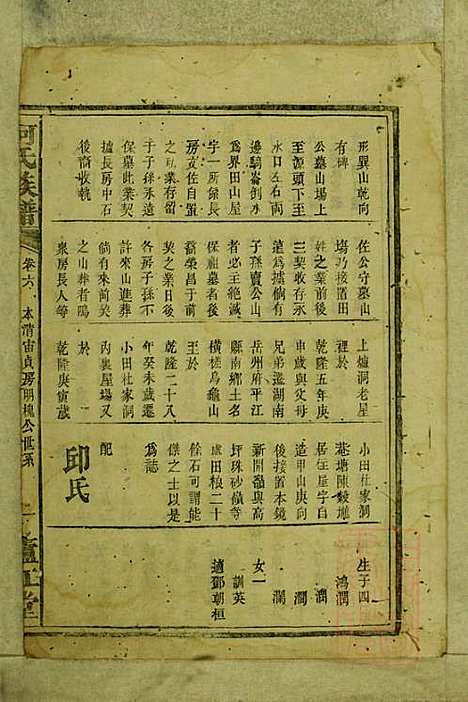 形巽山乾向
有碑
公墓山塲上
至源頭下至
水口左右二
邊騎崙倒水
為界田山屋
宇一所係長
房文佐自置
之私業存留
于子孫永遠
保墓此業契
據長房中石
後裔收執
佐公守墓山
塲乃接置田
姓之業前後
三契收存永
遠為據倘有
子孫賣公山
者必主絶滅
保祖墓者後
裔榮昌于前
契之業日後
各房子孫不
許來山進葬
倘有來尚关
之山葬者鳴
衆房長人等
上爐洞老屋
裡於
乾隆五年庚
申歲與文母
兄弟遷湖南
岳州府平江
縣南鄉土名
橫槎烏龜山
至於
乾隆二十八
年癸未歲遷
小田杜家洞
內裏屋場又
於
乾隆庚寅歲
小田杜家洞
港塘陳畯壠
居住屋宇白
造甲山庚向
後接置本鏡
新開嶺與高
坪珠砂嶺等
處田粮二十
餘石可謂能
傑之士以是
為誌
配
邱氏
生子四
鴻潤
潤
潤
瀾
女一
訓英
適鄧朝桓
何氏族譜
卷六
本清宙貞房明槐公世系
二
廬江堂